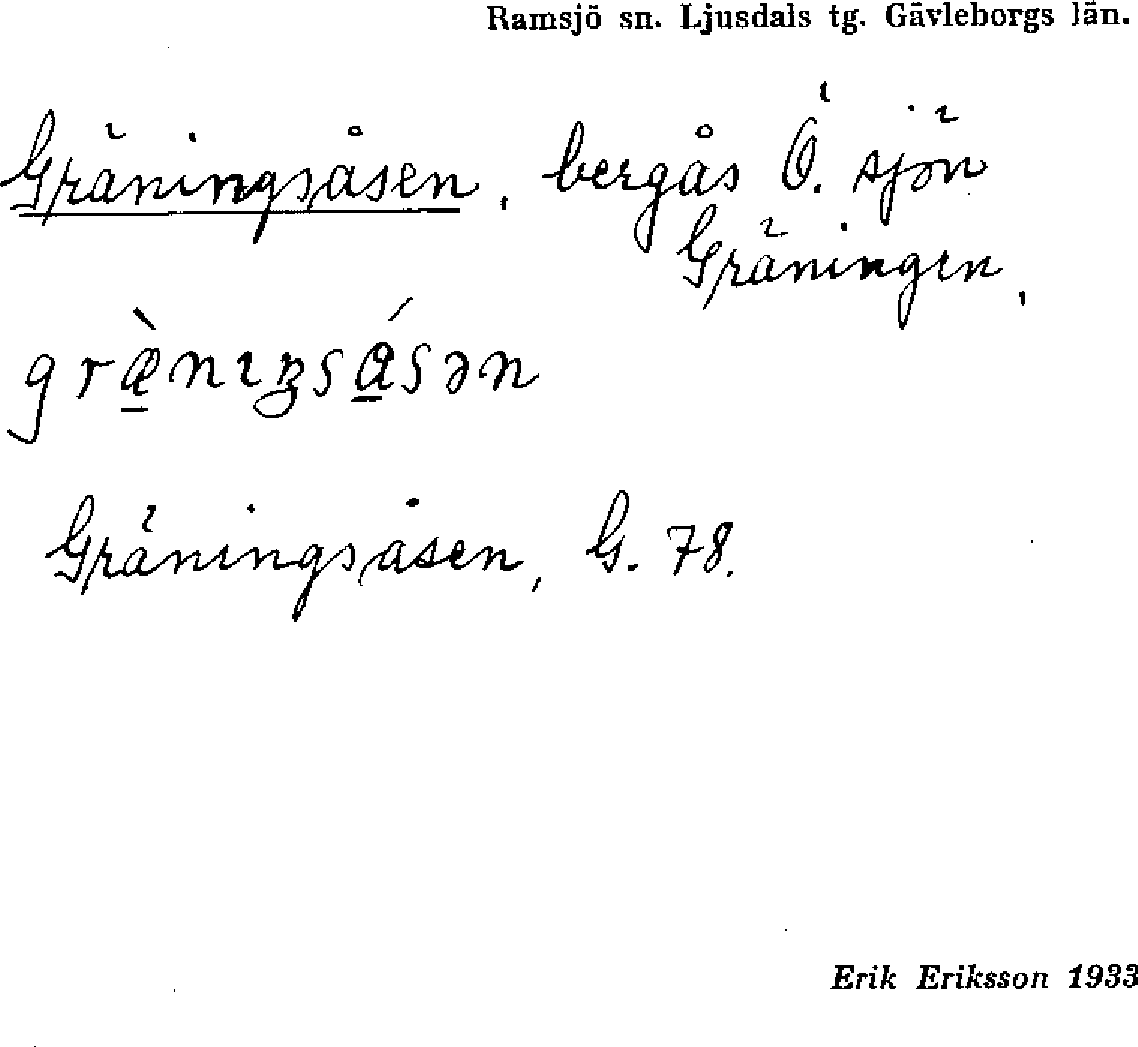 Ramsjö sn. Ljusdals tg. Gävleborgs län.
Gräningsåsen, bergås Ö. sjön
Gräningen.
græ̀nıŋsåśən
Gräningsåsen, G. 78.
Erik Eriksson 1933